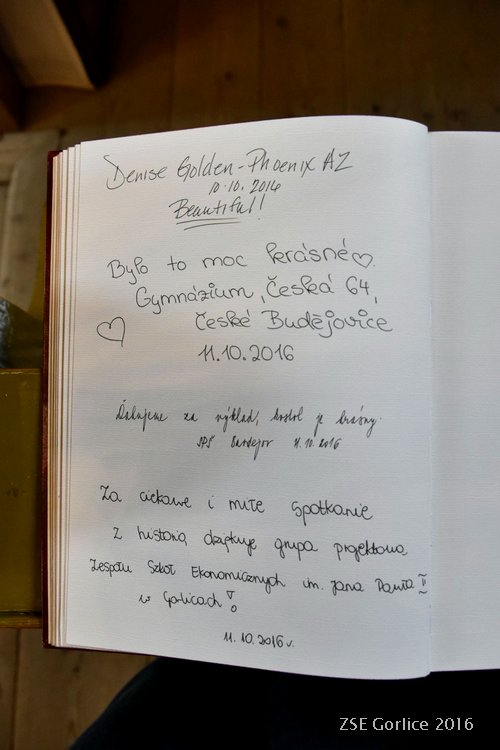 Denise Golden - Phoenix AZ
10.10.2016
Beautiful!
Bylo to moc krásné ♡.
Gymnázium, Česká 64,
České Budějovice
11.10.2016
Ďakujeme za výklad, kostol je krásny.
SPŠ Bardejov 11.10.2016
Za ciekawe i miłe spotkanie
z historią dziękuje grupa projektowa
Zespołu Szkół Ekonomicznych im. Jana Pawła II
w Gorlicach!
11.10.2016 r.
ZSE Gorlice 2016